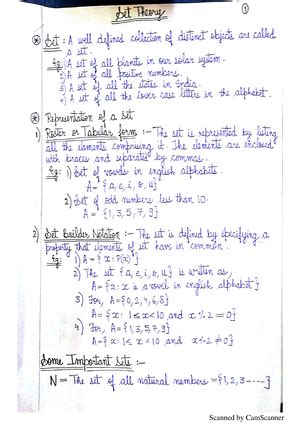 Set Theory
①
⊛ Set : A well defined collection of distinct objects are called
a set.
Eg: 1) A set of all planets in our solar system.
2) A set of all positive numbers.
3) A set of all the states in India.
4) A set of all the lower case letters in the alphabet.
⊛ Representation of a Set
1) Roster or Tabular form :- The set is represented by listing
all the elements comprising it. The elements are enclosed
with braces and separated by commas.
Eg: 1) Set of vowels in english alphabets.
A = {a, e, i, o, u}
2) Set of odd numbers less than 10:
A = {1, 3, 5, 7, 9}
2) Set builder Notation :- The set is defined by specifying a
property that elements of set have in common.
Eg: 1) A = {x : P(x)}
2) The set {a, e, i, o, u} is written as,
A = {x : x is a vowel in english alphabet}
3) For, A = {0, 2, 4, 6, 8}
A = {x : 1 ≤ x < 10 and x % 2 = 0}
4) For, A = {1, 3, 5, 7, 9}
A = {x : 1 ≤ x < 10 and x % 2 ≠ 0}
Some Important Sets :-
N = The set of all natural numbers = {1, 2, 3 ----}
Scanned by CamScanner